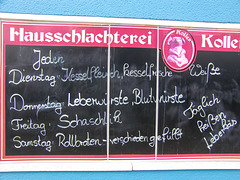 Hausschlachterei Koller
Koller
Jeden
Dienstag: Kesselfleisch, kesselfrische Weiße
Donnerstag: Leberwürste, Blutwürste
Freitag: Schaschlik
Samstag: Rollbraten - verschieden gefüllt
Täglich
heißen
Leberkäs